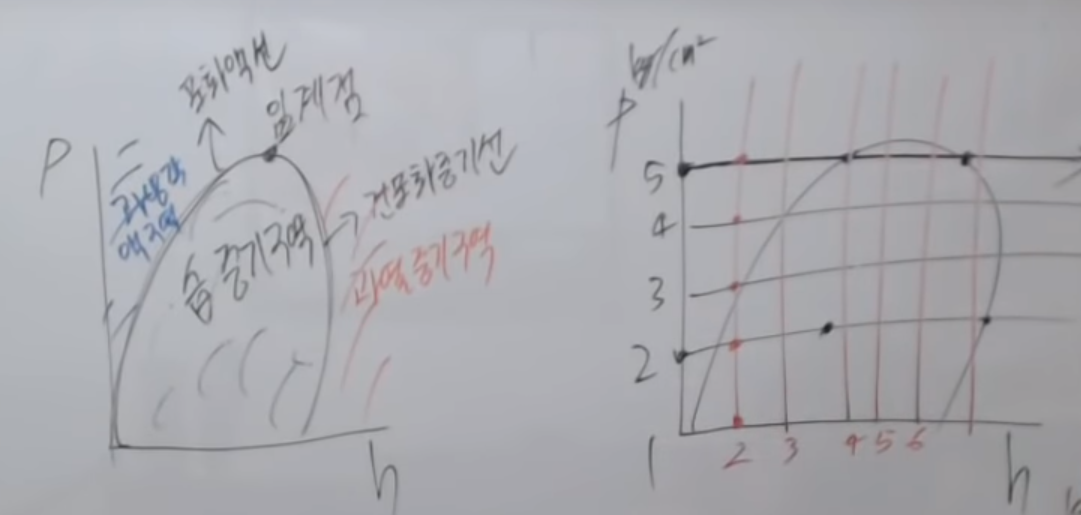 포화액선
임계점
P
과냉각
액구역
건포화증기선
습증기구역
과열증기구역
h
kg/cm²
P
5
4
3
2
1
2 3 4 5 6
h